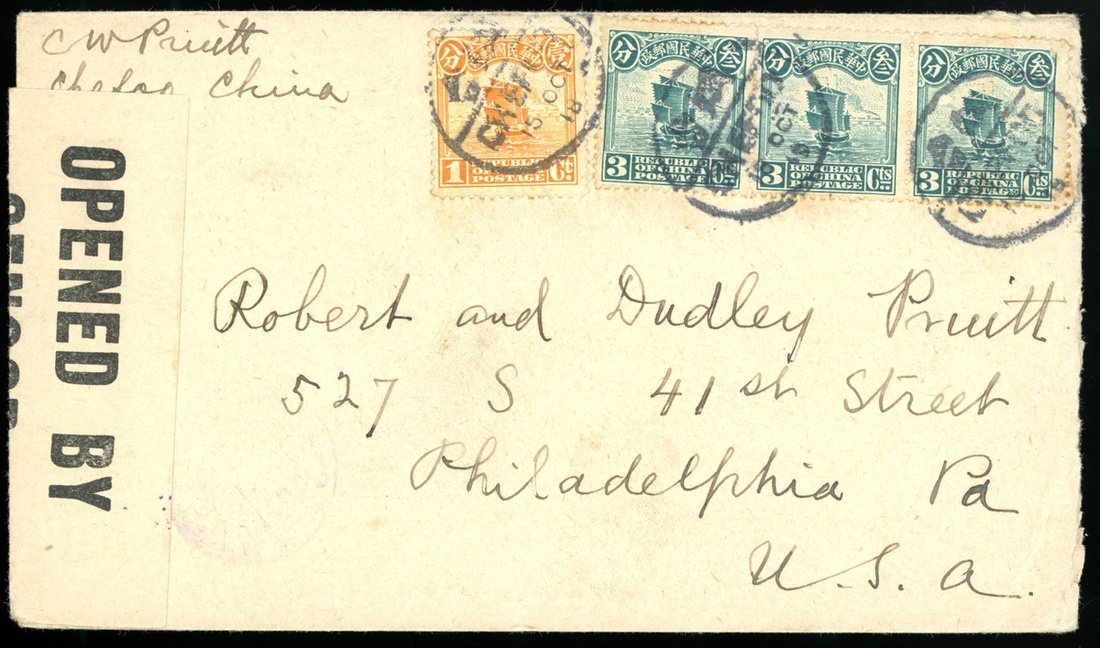 C W Pruitt
Chefoo China
OPENED BY
CENSOR
壹分 中華民國郵政
1 REPUBLIC OF CHINA POSTAGE Ct
叁分 中華民國郵政
3 REPUBLIC OF CHINA POSTAGE Cts
叁分 中華民國郵政
3 REPUBLIC OF CHINA POSTAGE Cts
叁分 中華民國郵政
3 REPUBLIC OF CHINA POSTAGE Cts
CHEFOO
OCT
18
Robert and Dudley Pruitt
527 S 41st Street
Philadelphia Pa
U.S.a.